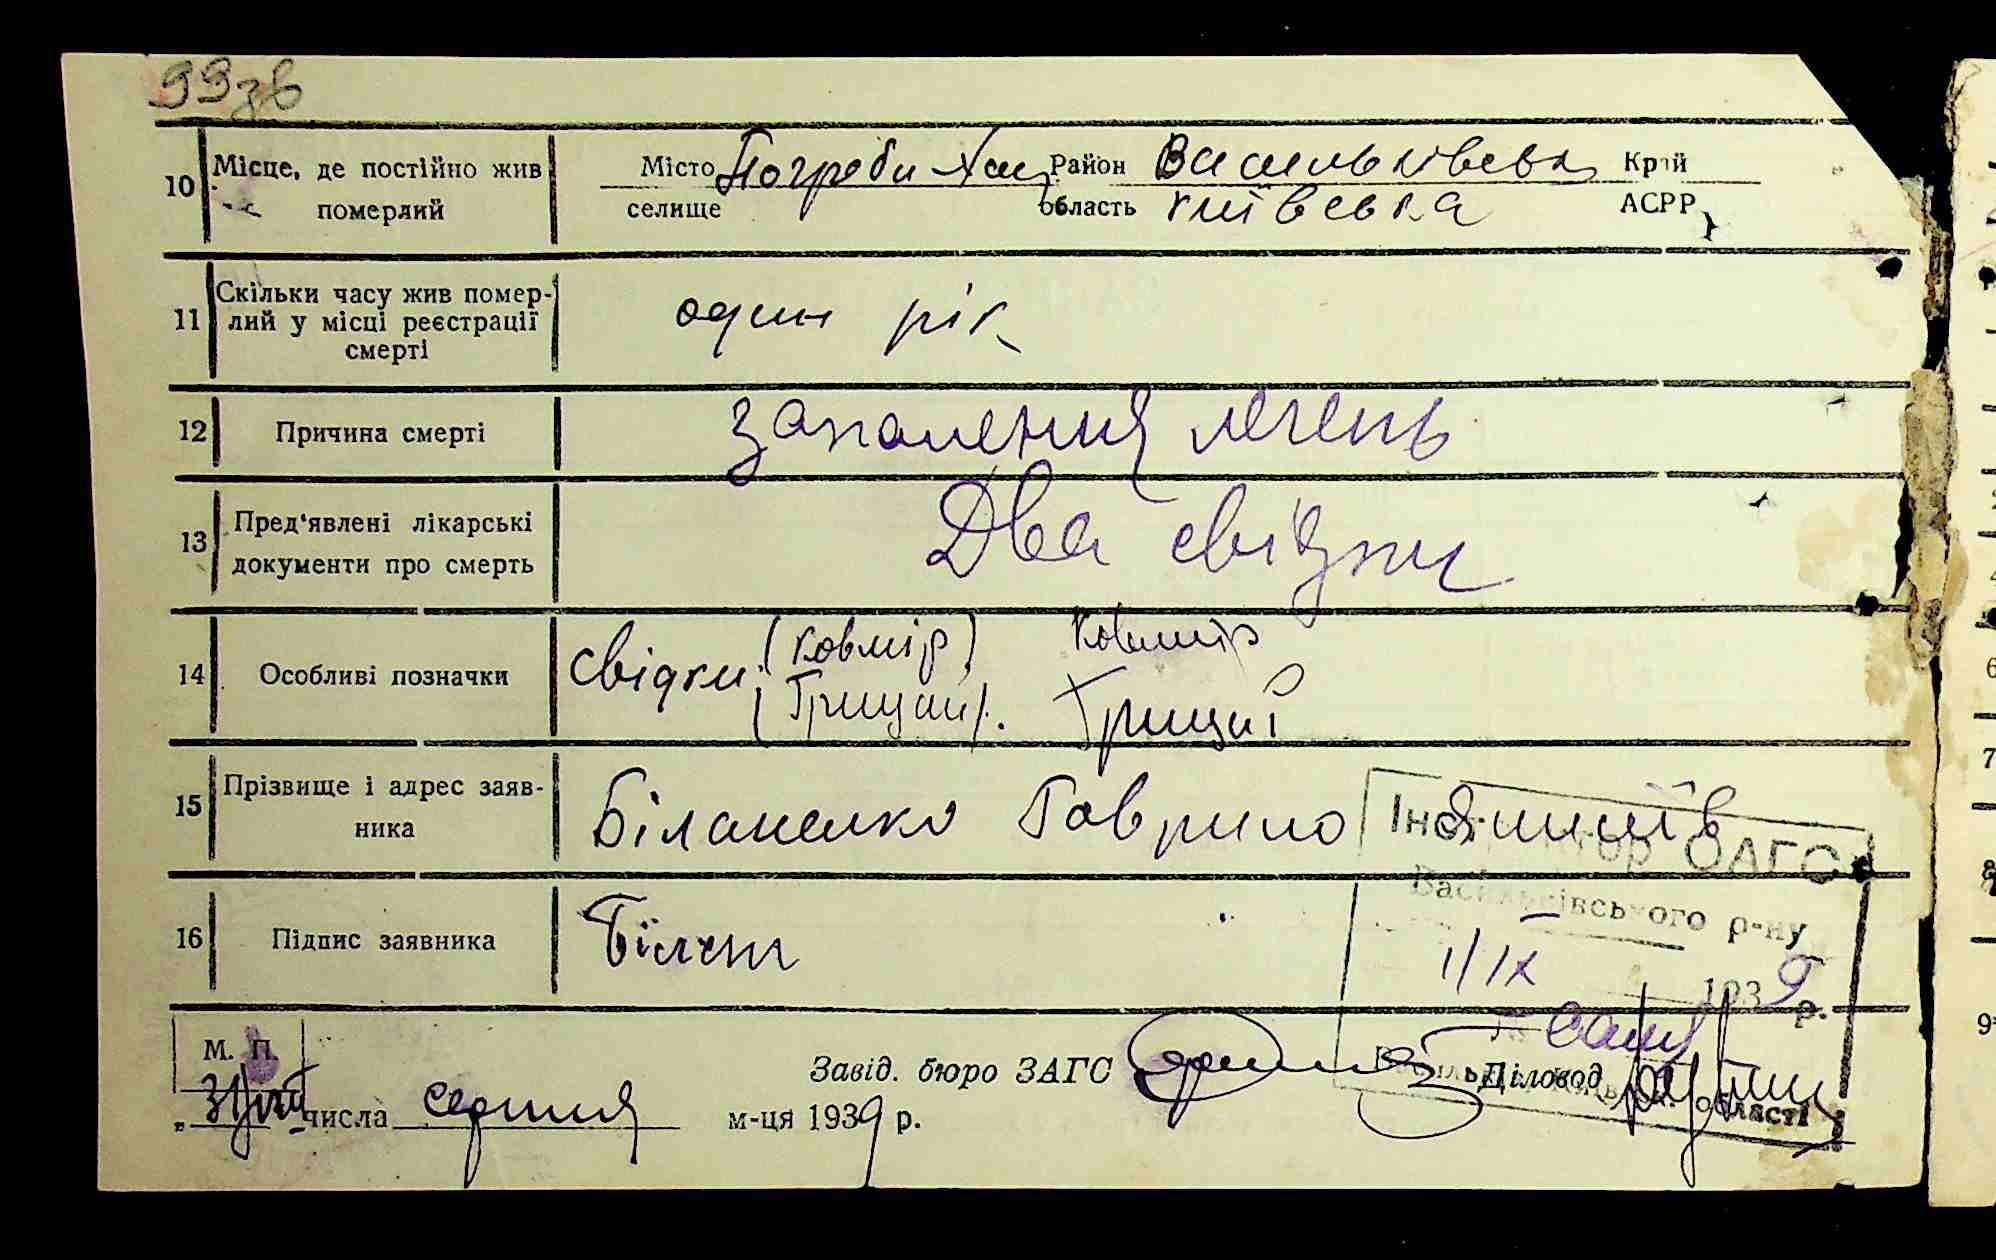 99зв
10 Місце, де постійно жив померлий
Місто селище Погреби Район Васильківськ Край
область київська АСРР
11 Скільки часу жив помер-
лий у місці реєстрації
смерті
один рік
12 Причина смерті
запалення легень
13 Пред‘явлені лікарські
документи про смерть
Два свідки
14 Особливі позначки
свідки (Ковмір) Ковмір
(Грицай). Грицай
15 Прізвище і адрес заяв-
ника
Біланенко Гаврило
Інспектор ЗАГС
Васильківського р-ну
16 Підпис заявника
1/IX
1939 р.
М. П.
Завід. бюро ЗАГС
Діловод
області
„31 числа серпня м-ця 1939 р.